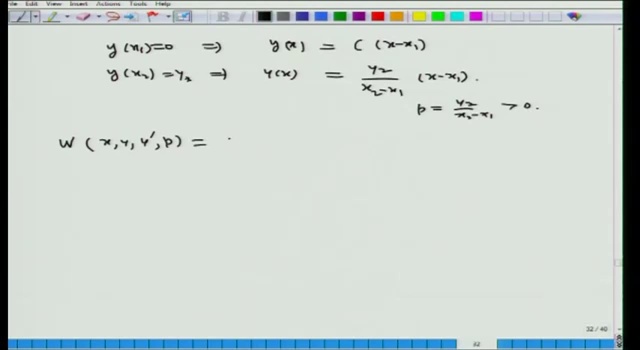 View Insert Actions Tools Help
y(x₁)=0 ⇒ y(x) = C (x-x₁)
y(x₂) = y₂ ⇒ y(x) = y₂/(x₂-x₁) (x-x₁).
p = y₂/(x₂-x₁) > 0.
W (x, y, y', p) =
32 / 40
32